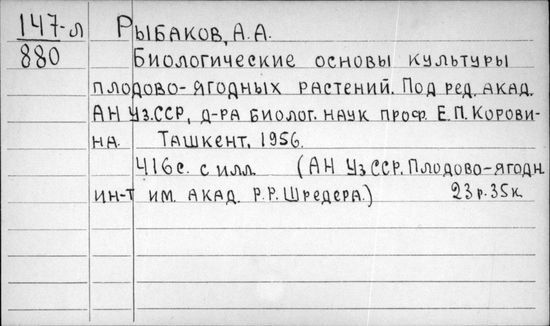 147-л Рыбаков, А.А.
880 Биологические основы культуры
плодово-ягодных растений. Под ред. акад.
АН УзССР, д-ра биолог. наук проф. Е.П. Корови-
на. Ташкент, 1956.
416 с. с илл. (АН УзССР. Плодово-ягодн.
ин-т им. акад. Р.Р. Шредера.) 23 р. 35 к.